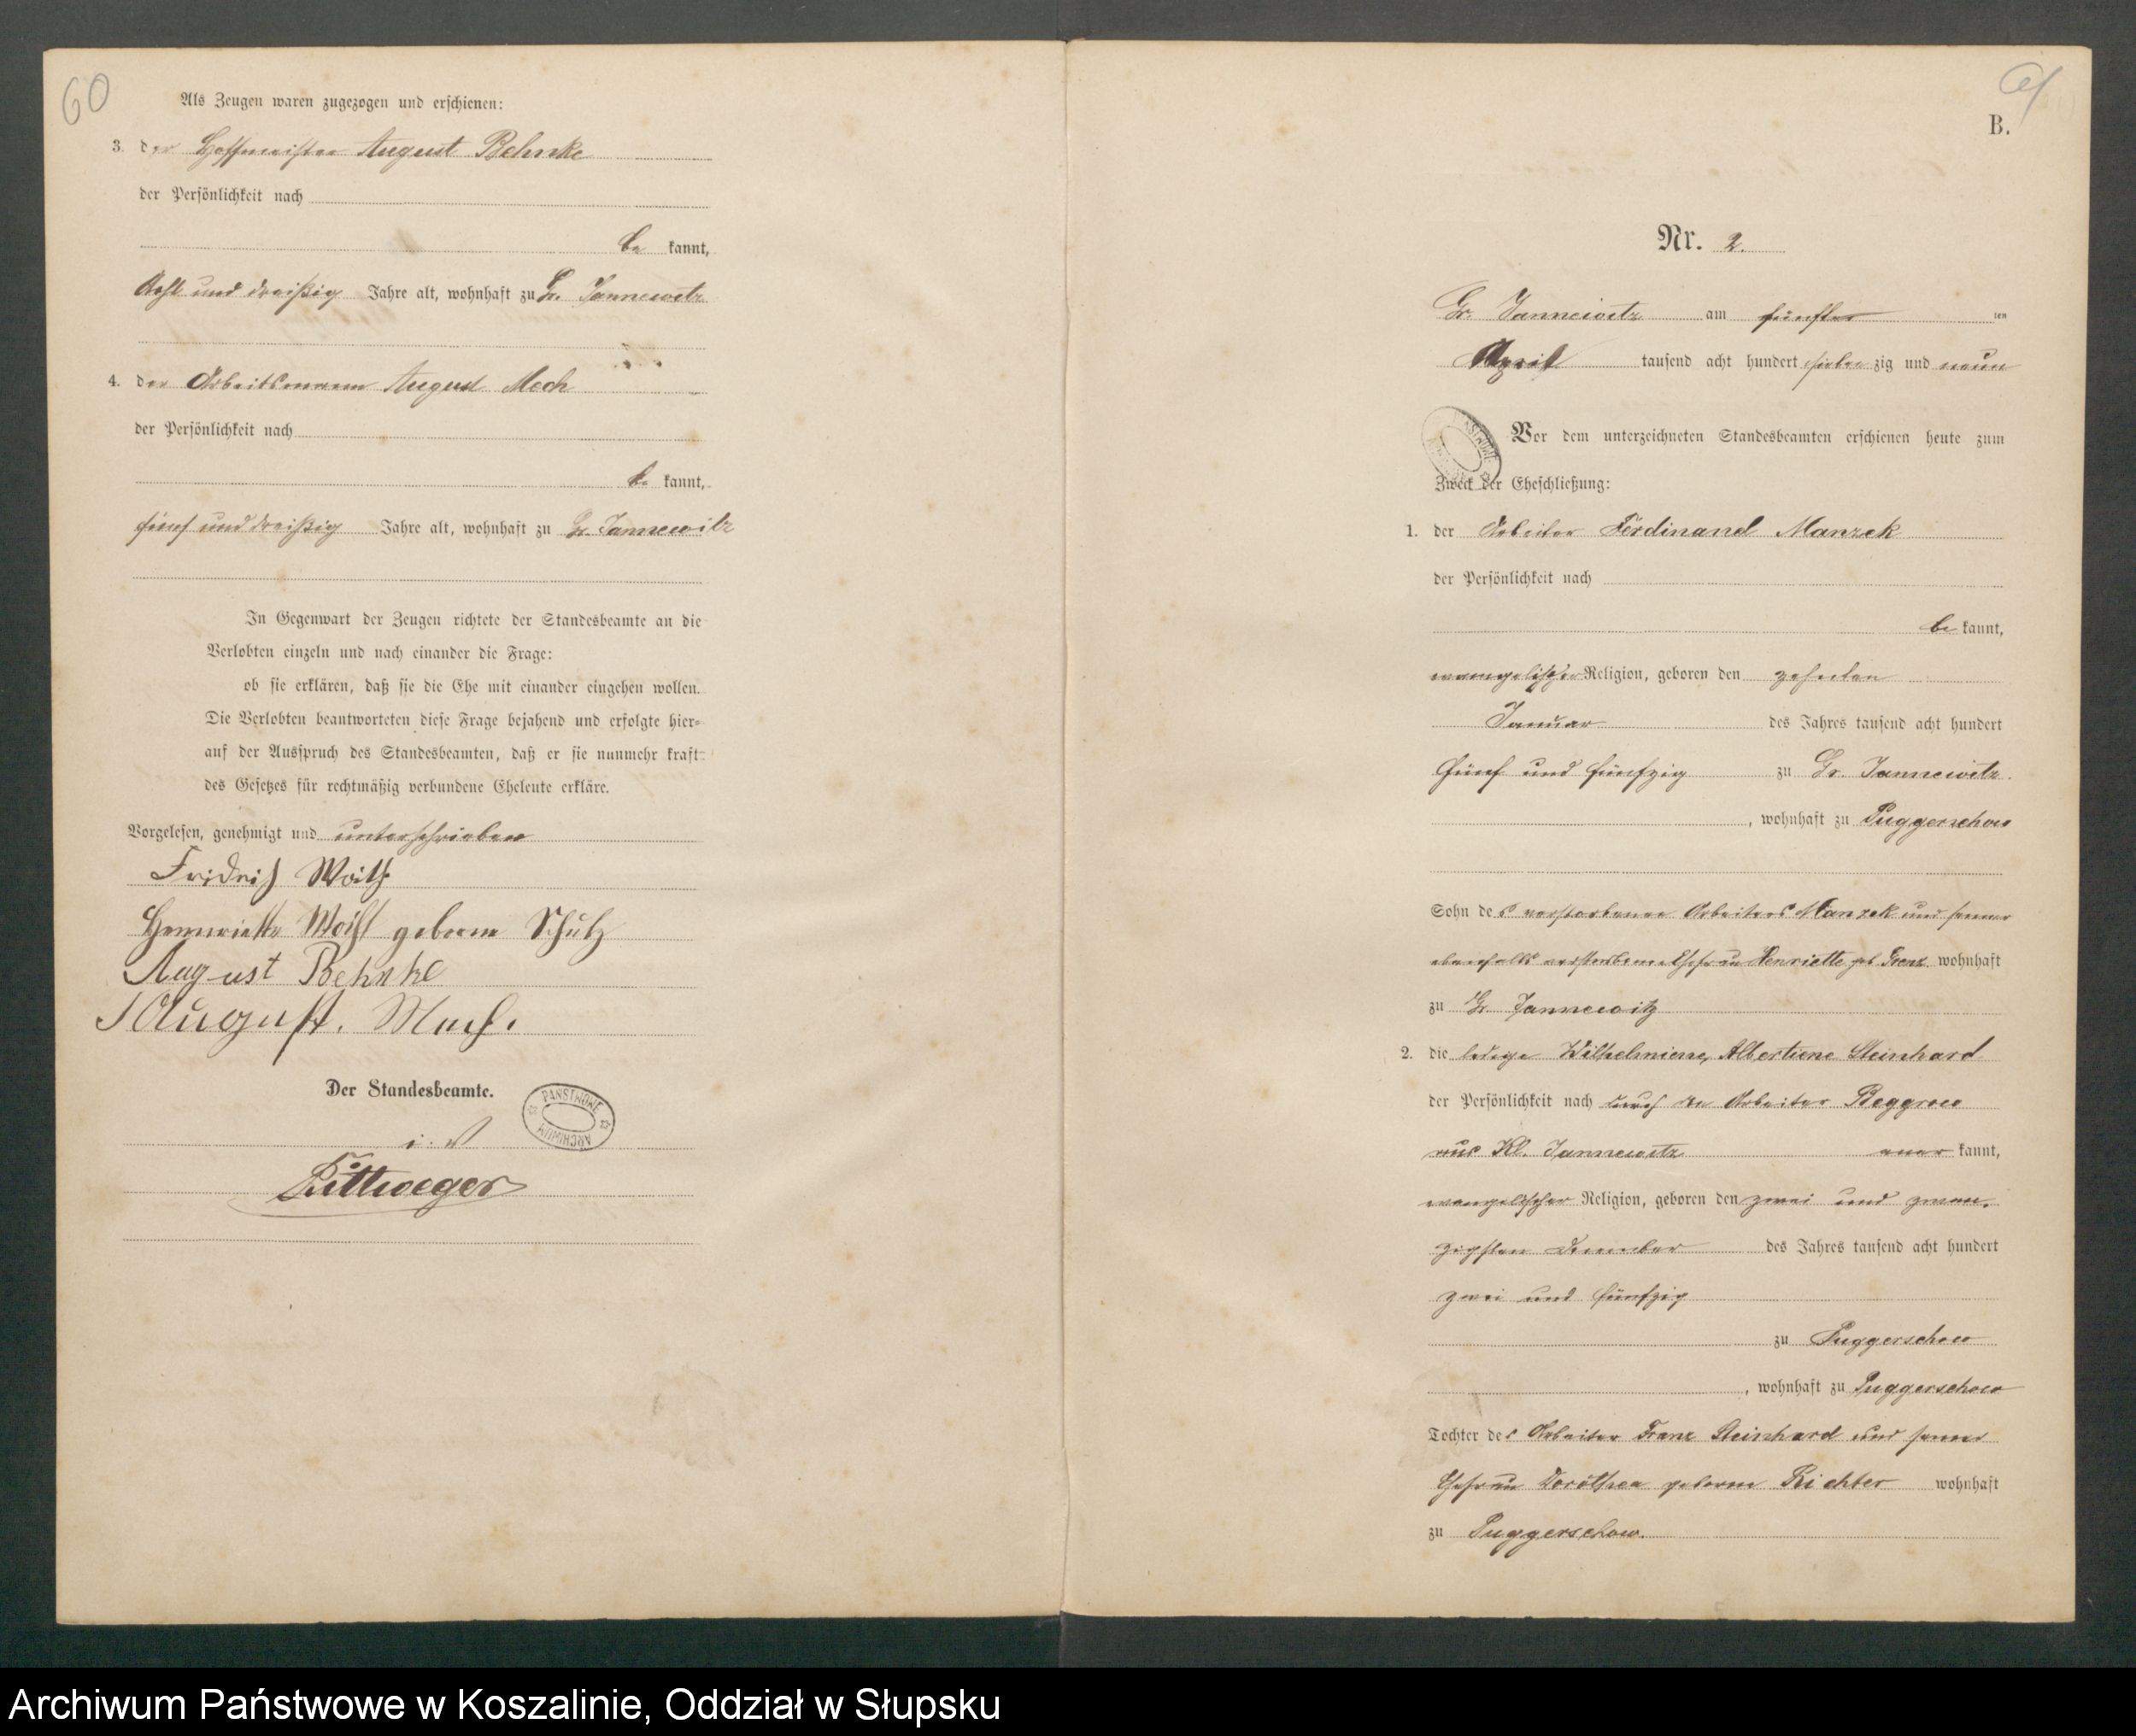 60
Als Zeugen waren zugezogen und erschienen:
3. der Hoffmeister August Behnke
der Persönlichkeit nach
be kannt,
Acht und dreißig Jahre alt, wohnhaft zu Gr. Jannewitz
4. der Arbeitsmann August Moch
der Persönlichkeit nach
be kannt,
fünf und dreißig Jahre alt, wohnhaft zu Gr. Jannewitz
In Gegenwart der Zeugen richtete der Standesbeamte an die
Verlobten einzeln und nach einander die Frage:
ob sie erklären, daß sie die Ehe mit einander eingehen wollen.
Die Verlobten beantworteten diese Frage bejahend und erfolgte hier-
auf der Ausspruch des Standesbeamten, daß er sie nunmehr kraft
des Gesetzes für rechtmäßig verbundene Eheleute erkläre.
Vorgelesen, genehmigt und unterschrieben
Fridrich
Henriette geborne Schulz
August Behnke
August.
Der Standesbeamte.
PAŃSTWOWE ARCHIWUM
i. V
B.
Nr. 2.
Gr. Jannewitz am fünften ten
April tausend acht hundert sieben zig und neun
Vor dem unterzeichneten Standesbeamten erschienen heute zum
Zweck der Eheschließung:
1. der Arbeiter Ferdinand Manzek
der Persönlichkeit nach
be kannt,
evangelischer Religion, geboren den zehnten
Januar des Jahres tausend acht hundert
fünf und fünfzig zu Gr. Jannewitz
, wohnhaft zu Puggerschow
Sohn des verstorbenen Arbeiters Manzek und seiner
ebenfalls verstorbenen Ehefrau Henriette geb wohnhaft
zu Gr. Jannewitz
2. die ledige Wilhelmiene, Albertiene Steinhard
der Persönlichkeit nach durch den Arbeiter Beggrow
aus Kl. Jannewitz aner kannt,
evangelischer Religion, geboren den zwei und zwan-
zigsten Dezember des Jahres tausend acht hundert
zwei und fünfzig
zu Puggerschow
, wohnhaft zu Puggerschow
Tochter des Arbeiter Franz Steinhard und seiner
Ehefrau Dorothea geborne Richter wohnhaft
zu Puggerschow.
Archiwum Państwowe w Koszalinie, Oddział w Słupsku